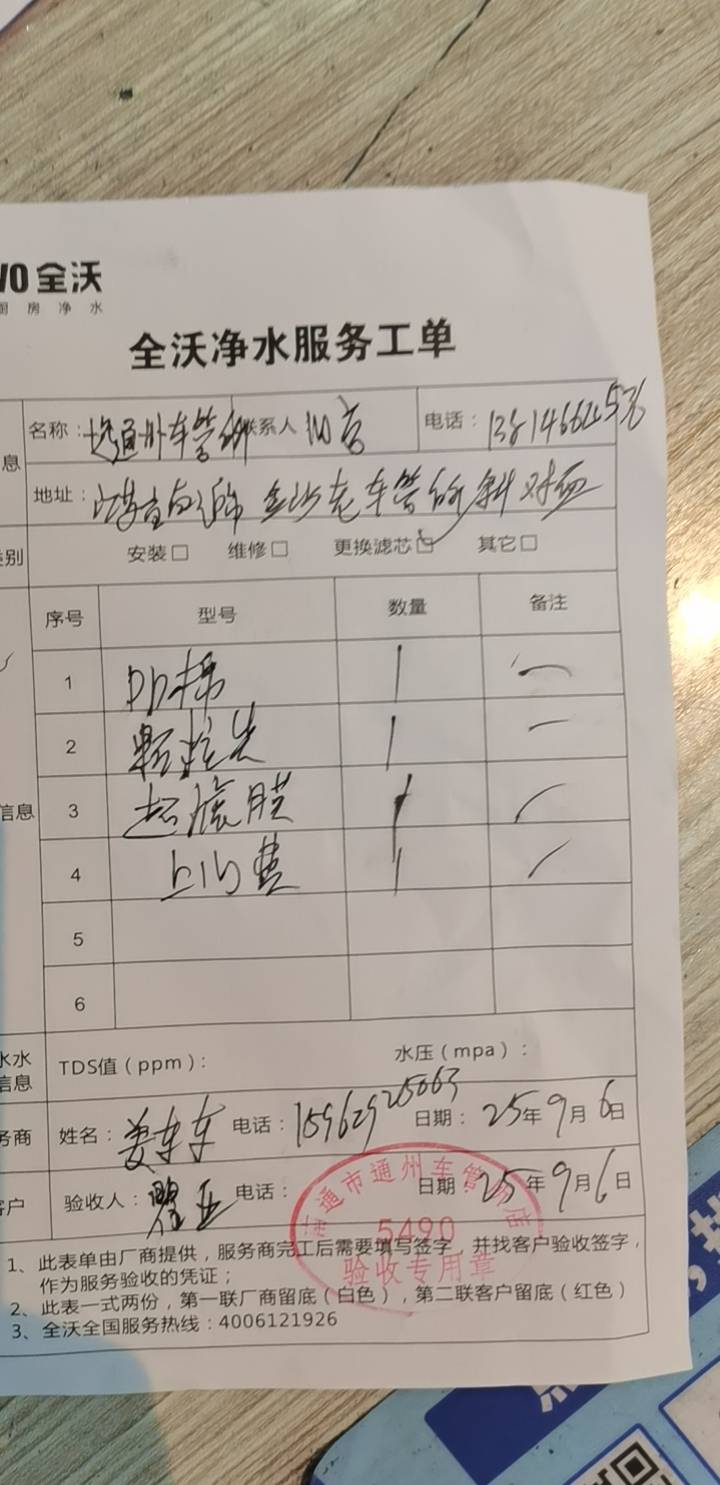 VO 全沃
厨房净水
全沃净水服务工单
息
名称：通州车管所 联系人 电话：
地址：金沙 车管所斜对面
类别 安装□ 维修□ 更换滤芯☑ 其它□
序号 型号 数量 备注
1 PP棉 1
2 颗粒炭 1
信息 3 超滤膜 1
4 上门费 1
5
6
水水
信息
TDS值（ppm）： 水压（mpa）：
务商 姓名：姜车车 电话：15962925063 日期：25年9月6日
客户 验收人： 电话： 日期 25年9月6日
南通市通州车管所店
5490
验收专用章
1、此表单由厂商提供，服务商完工后需要填写签字，并找客户验收签字，
作为服务验收的凭证；
2、此表一式两份，第一联厂商留底（白色），第二联客户留底（红色）
3、全沃全国服务热线：4006121926